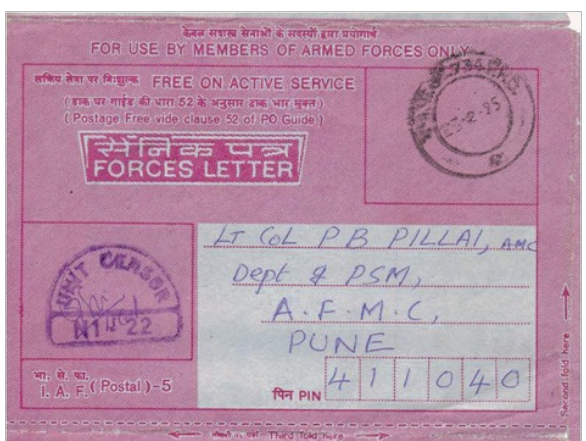 केवल सशस्त्र सेनाओं के सदस्यों द्वारा प्रयोगार्थ
FOR USE BY MEMBERS OF ARMED FORCES ONLY
सक्रिय सेवा पर निःशुल्क FREE ON ACTIVE SERVICE
(डाक घर गाईड की धारा 52 के अनुसार डाक भार मुक्त)
(Postage Free vide clause 52 of PO Guide)
सैनिक पत्र
FORCES LETTER
734
23-2-95
LT COL P B PILLAI, AMC
Dept of PSM,
A.F.M.C,
PUNE
पिन PIN 411040
UNIT CENSOR
22
भा. से. फा.
I. A. F. (Postal)-5
Second fold here
Third fold here